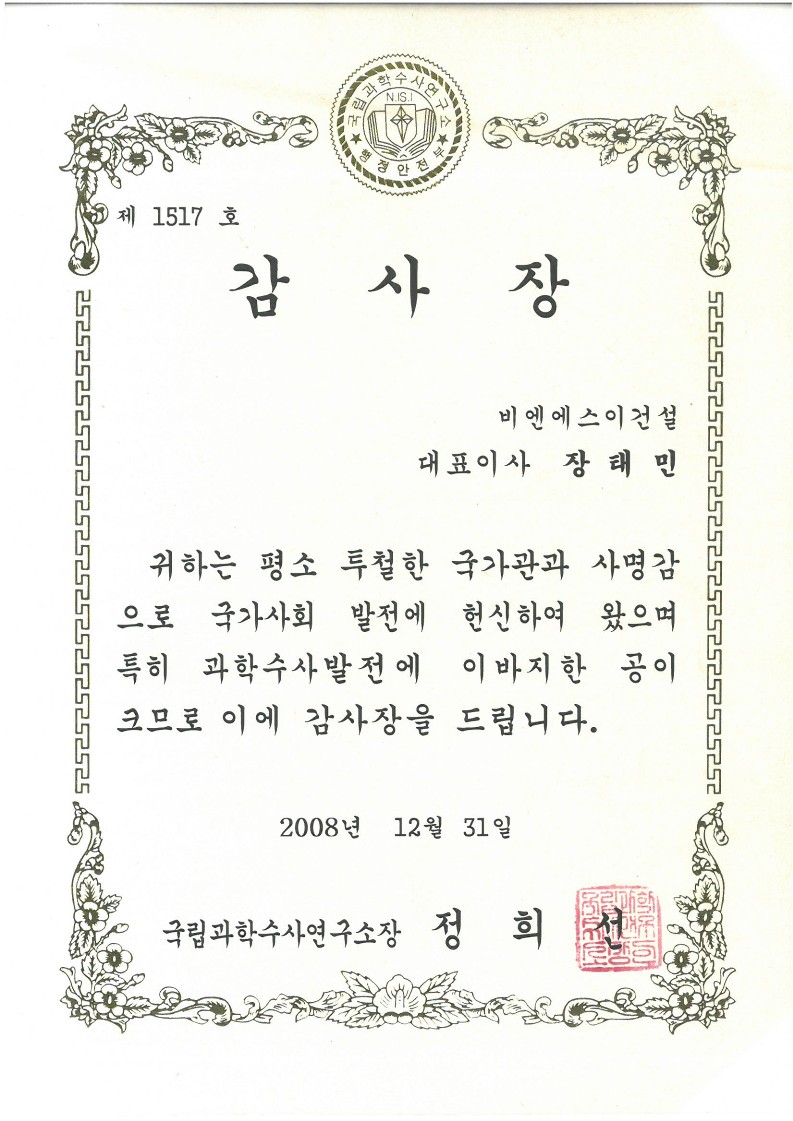 국립과학수사연구소
N.I.S.I
행정안전부
제 1517 호
감 사 장
비엔에스이건설
대표이사 장 태 민
귀하는 평소 투철한 국가관과 사명감
으로 국가사회 발전에 헌신하여 왔으며
특히 과학수사발전에 이바지한 공이
크므로 이에 감사장을 드립니다.
2008년 12월 31일
국립과학수사연구소장 정 희 선